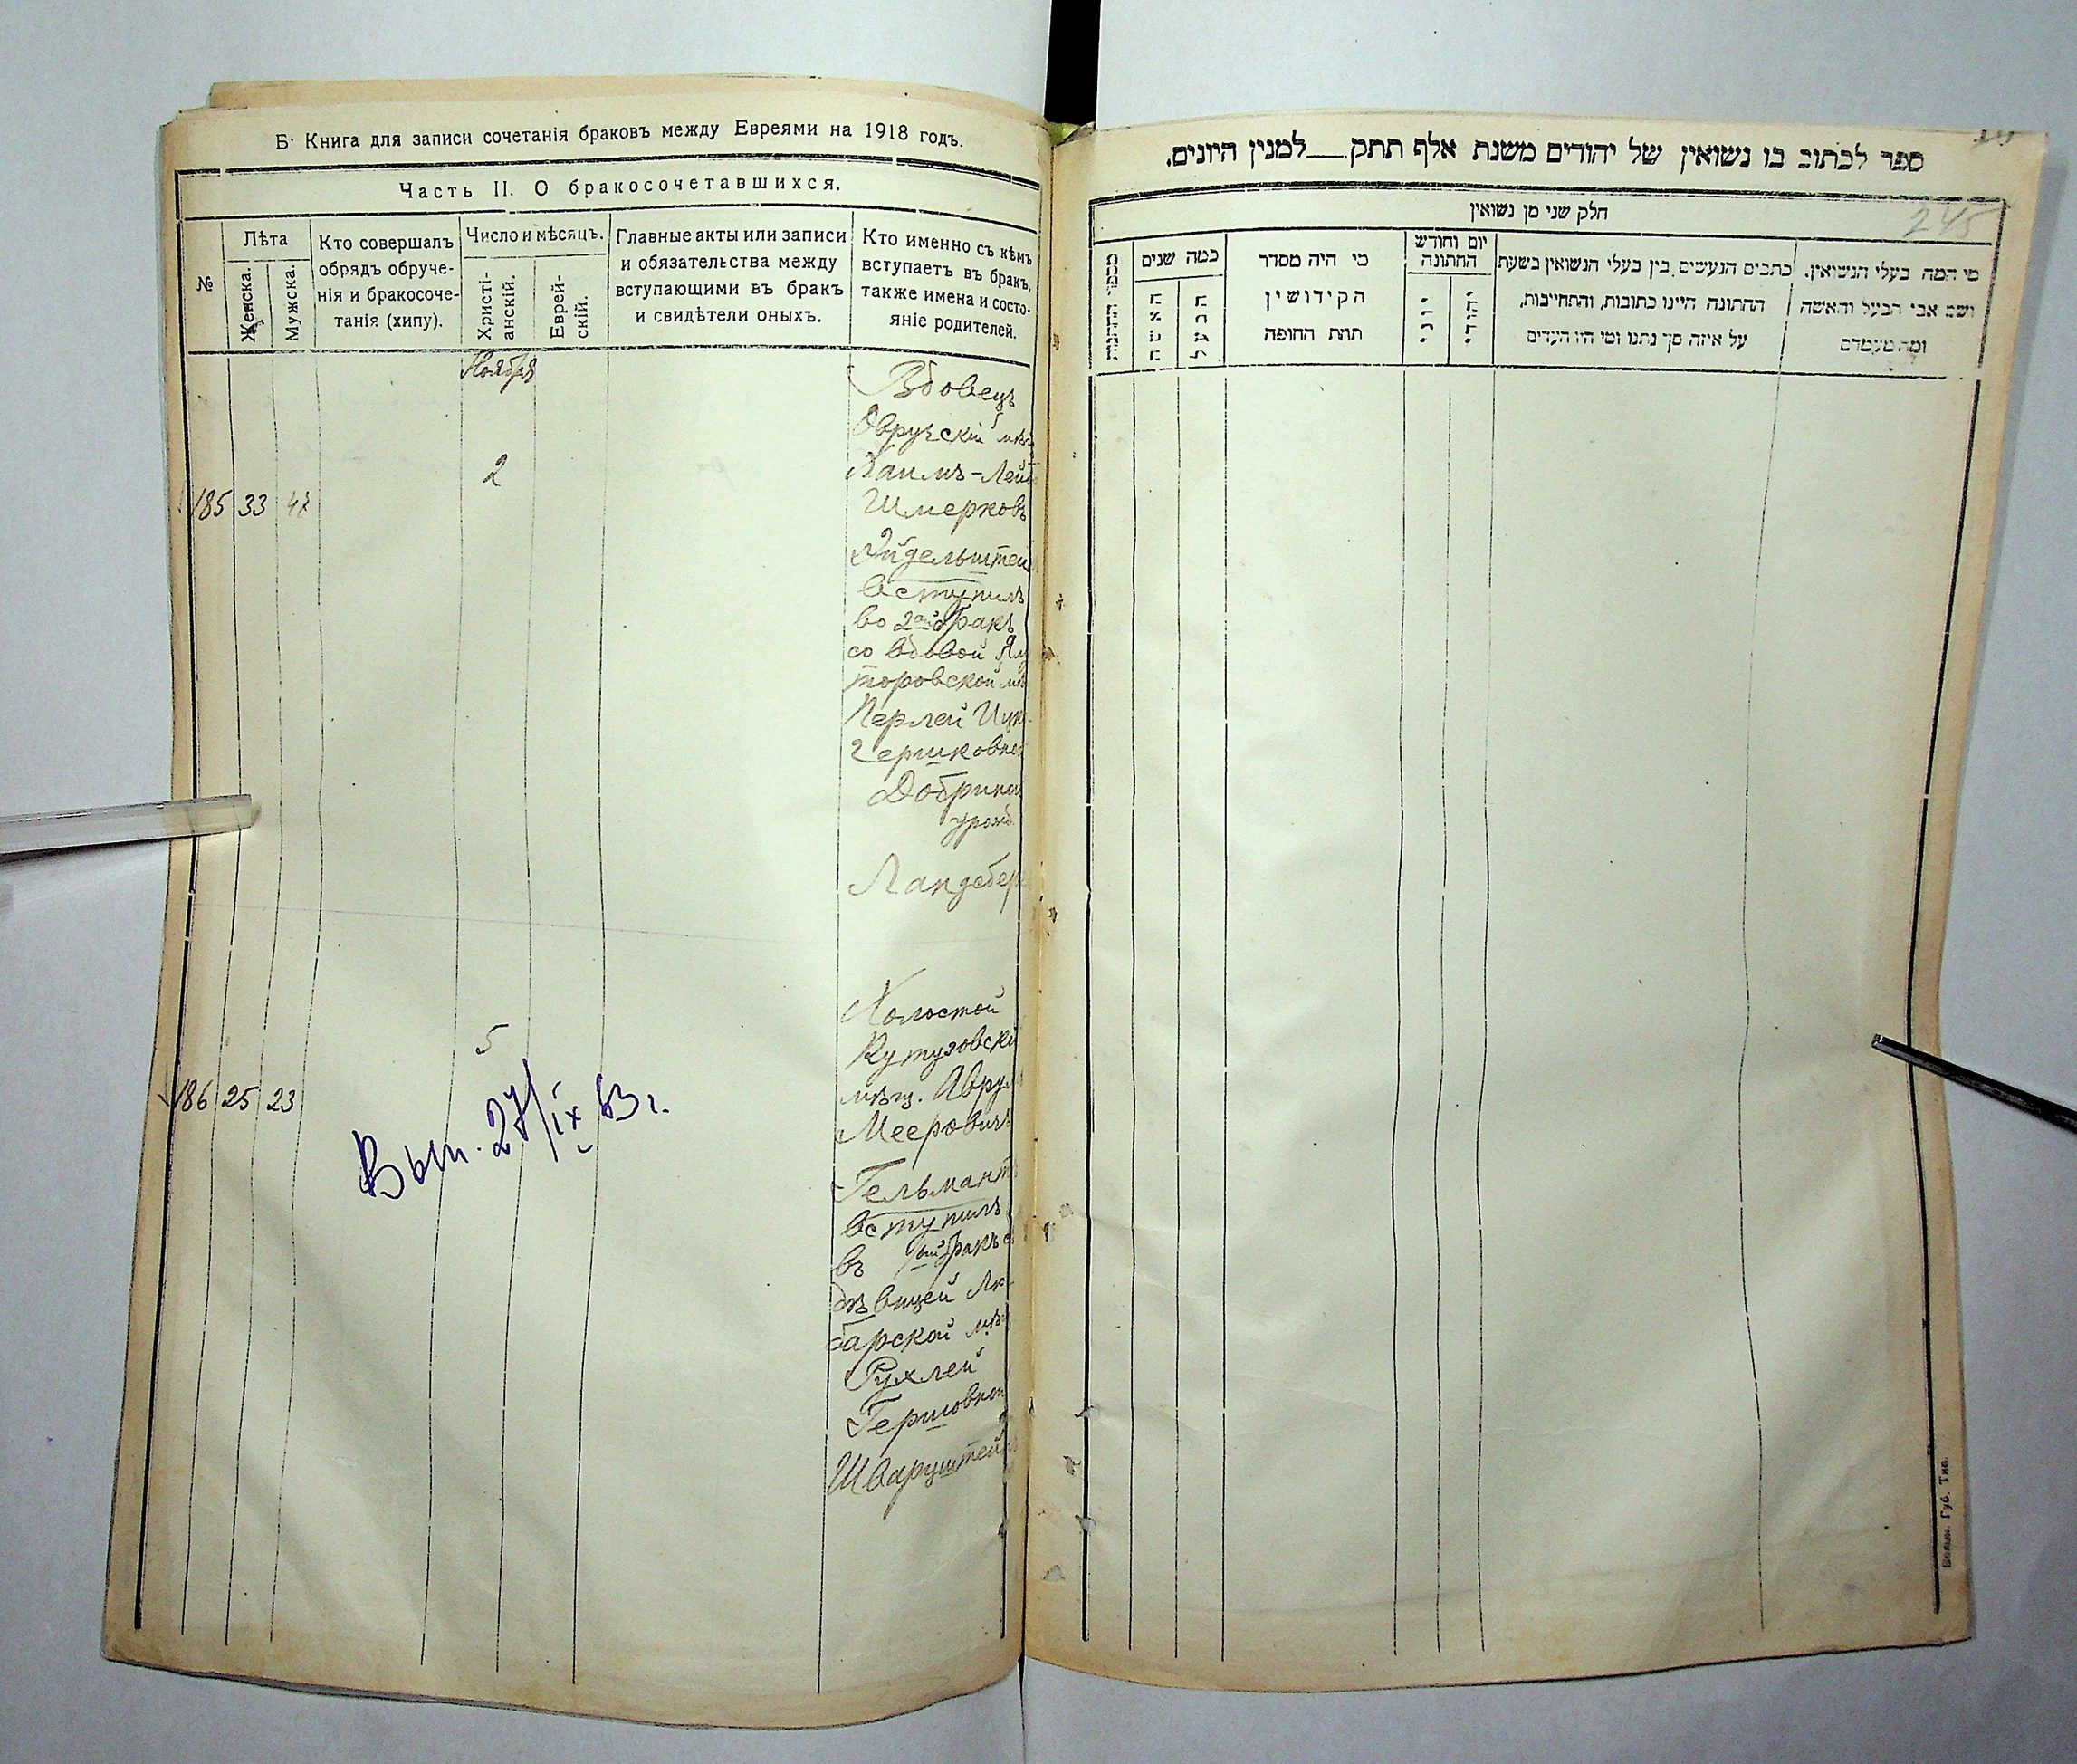 Б. Книга для записи сочетанія браковъ между Евреями на 1918 годъ.
Часть II. О бракосочетавшихся.
№
Лѣта
Женска.
Мужска.
Кто совершалъ
обрядъ обруче-
нія и бракосоче-
танія (хипу).
Число и мѣсяцъ.
Христі-
анскій.
Еврей-
скій.
Главные акты или записи
и обязательства между
вступающими въ бракъ
и свидѣтели оныхъ.
Кто именно съ кѣмъ
вступаетъ въ бракъ,
также имена и состо-
яніе родителей.
Ноября
185 33 2
Вдовецъ
Овручскій мѣщ
Хаимъ-Лей
Шмерковъ
Эйдельштей
вступилъ
во 2ой бракъ
со вдовой
торовской мѣ
Перлей Ицко
Гершковной
Добрин
урожд.
Ландсбер
186 25 23 5
Холостой
Кутузовскі
мѣщ. Аврум
Мееровичъ
Гельмант
вступилъ
въ 1ый бракъ с
дѣвицей Лю
барской мѣщ
Рухлей
Гершовной
Шварцштей
Вып. 27/IX 63 г.
ספר לכתוב בו נשואין של יהודים משנת אלף תתק___למנין היונים.
245
חלק שני מן נשואין
מי המה בעלי הנשואין.
ושם אבי הבעל והאשה
ומה מעמדם
כתבים הנעשים בין בעלי הנשואין בשעת
החתונה היינו כתובות, והתחייבות,
על איזה סך נתנו ומי היו העדים
יום וחודש
החתונה
יהודי
יוני
מי היה מסדר
הקידושין
תחת החופה
כמה שנים
הבעל
האשה
מספר החתונות
Волын. Губ. Тип.